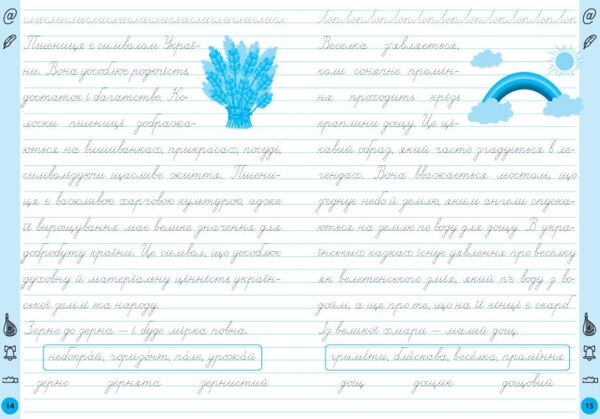 Пшениця є символом Украї-
ни. Вона уособлює родючість,
достаток і багатство. Ко-
лоски пшениці зобража-
ються на вишиванках, прикрасах, посуді,
символізуючи щасливе життя. Пшени-
ця є важливою харчовою культурою, адже
її вирощування має велике значення для
добробуту країни. Це символ, що уособлює
духовну й матеріальну цінність україн-
ської землі та народу.
Зерно до зерна — і буде мірка повна.
небокра́й, горизо́нт, по́ле, урожа́й
зерно зернята зернистий
14
Веселка з'являється,
коли сонячне промін-
ня проходить крізь
краплини дощу. Це ці-
кавий образ, який часто згадується в ле-
гендах. Вона вважається мостом, що
з'єднує небо й землю, яким ангели спуска-
ються на землю по воду для дощу. В укра-
їнських казках існує уявлення про веселку
як велетенського змія, який п'є воду з во-
дойм, а ще про те, що на її кінці є скарб.
Із великої хмари — малий дощ.
гримі́ти, бли́скавка, весе́лка, промі́ння
дощ дощик дощовий
15